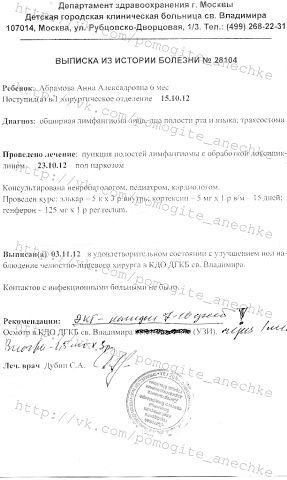 Департамент здравоохранения г. Москвы
Детская городская клиническая больница св. Владимира
107014, Москва, ул. Рубцовско-Дворцовая, 1/3. Тел.: (499) 268-22-31
ВЫПИСКА ИЗ ИСТОРИИ БОЛЕЗНИ № 28104
Ребенок: Абрамова Анна Александровна 6 мес
Поступил(а) в 1 хирургическое отделение 15.10.12
Диагноз: обширная лимфангиома лица, дна полости рта и языка; трахеостома
Проведено лечение: пункция полостей лимфангиомы с обработкой доксицик-
лином 23.10.12 под наркозом
Консультирована невропатологом, педиатром, кардиологом.
Проведен курс: элькар – 5 к х 3 р внутрь; кортексин – 5 мг х 1 р в/м – 15 дней;
генферон – 125 мг х 1 р per rectum.
Выписан(а) 03.11.12 в удовлетворительном состоянии с улучшением под на-
блюдение челюстно-лицевого хирурга в КДО ДГКБ св. Владимира.
Контактов с инфекционными больными не было.
Рекомендации: ЭКГ - 7-10 дней !
Осмотр в КДО ДГКБ св. Владимира (УЗИ). через 1 мес.
Леч. врач Дубин С.А.
http://vk.com/pomogite_anechke
http://vk.com/pomogite_anechke
http://vk.com/pomogite_anechke
http://vk.com/pomogite_anechke